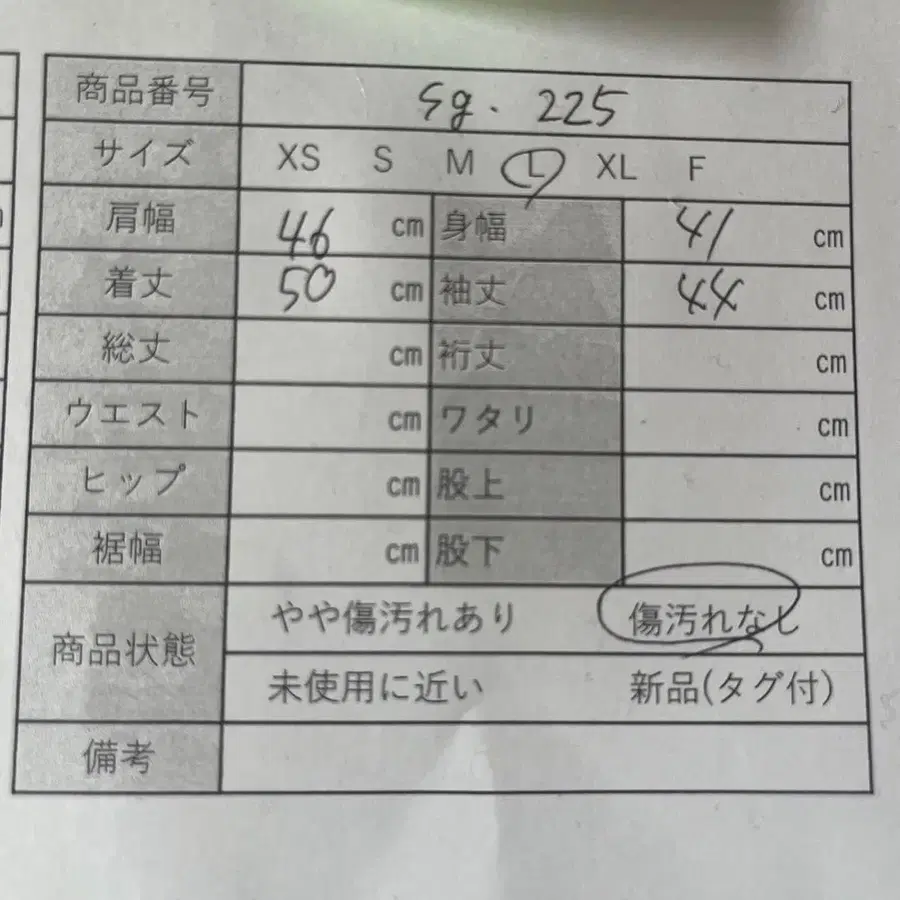 商品番号 sg. 225
サイズ XS S M L XL F
肩幅 46 cm 身幅 41 cm
着丈 50 cm 袖丈 44 cm
総丈 cm 裄丈 cm
ウエスト cm ワタリ cm
ヒップ cm 股上 cm
裾幅 cm 股下 cm
商品状態 やや傷汚れあり 傷汚れなし
未使用に近い 新品(タグ付)
備考